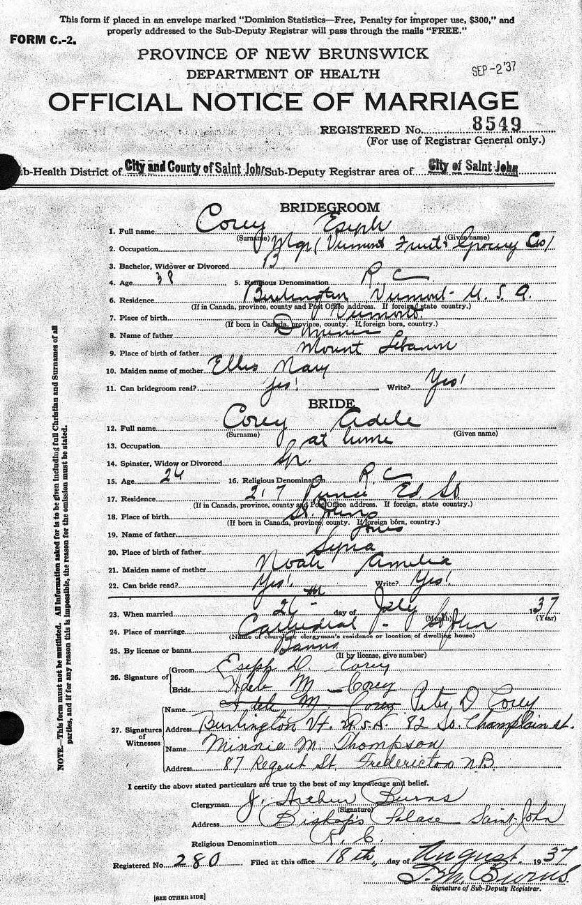 This form if placed in an envelope marked "Dominion Statistics—Free, Penalty for improper use, $300," and
properly addressed to the Sub-Deputy Registrar will pass through the mails "FREE."
FORM C.-2.
PROVINCE OF NEW BRUNSWICK
DEPARTMENT OF HEALTH
SEP -2 '37
OFFICIAL NOTICE OF MARRIAGE
REGISTERED No. 8549
(For use of Registrar General only.)
b-Health District of City and County of Saint John Sub-Deputy Registrar area of City of Saint John
BRIDEGROOM
1. Full name Corey Eseph
(Surname) (Given name)
2. Occupation Mgr (Vermont Fruit & Grocery Co)
3. Bachelor, Widower or Divorced B
4. Age 38 5. Religious Denomination R C
6. Residence Burlington Vermont U.S.A.
(If in Canada, province, county and Post Office address. If foreign, state country.)
7. Place of birth Vermont
(If born in Canada, province, county. If foreign born, country.)
8. Name of father
9. Place of birth of father Mount Lebanon
10. Maiden name of mother Ellis Mary
11. Can bridegroom read? Yes! Write? Yes!
BRIDE
12. Full name Corey Adele
(Surname) (Given name)
13. Occupation at home
14. Spinster, Widow or Divorced Sp.
15. Age 24 16. Religious Denomination R C
17. Residence 217 Prince Ed St
(If in Canada, province, county and Post Office address. If foreign, state country.)
18. Place of birth St. John
(If born in Canada, province, county. If foreign born, country.)
19. Name of father
20. Place of birth of father Syria
21. Maiden name of mother Noah Amelia
22. Can bride read? Yes! Write? Yes!
23. When married 26th day of July 1937
(Month) (Year)
24. Place of marriage Cathedral - St John
(Name of church or clergyman's residence or location of dwelling house)
25. By license or banns Banns
(If by license, give number)
26. Signature of Groom Eseph D. Corey
Bride Adele M Corey
27. Signatures of Witnesses
Name Adele M Corey Peter D Corey
Address Burlington Vt. U.S.A. 82 So. Champlain st.
Name Minnie M. Thompson
Address 87 Regent St. Fredericton N.B.
I certify the above stated particulars are true to the best of my knowledge and belief.
Clergyman J. Arthur Burns
(Signature)
Address Bishop's Palace Saint John
Religious Denomination R. C.
Registered No. 280 Filed at this office 18th day of August 1937
J. M. Burns
Signature of Sub-Deputy Registrar.
[SEE OTHER SIDE]
NOTE.—This form must not be mutilated. All information asked for is to be given including full Christian and Surnames of all
parties, and if for any reason this is impossible, the reason for the omission must be stated.